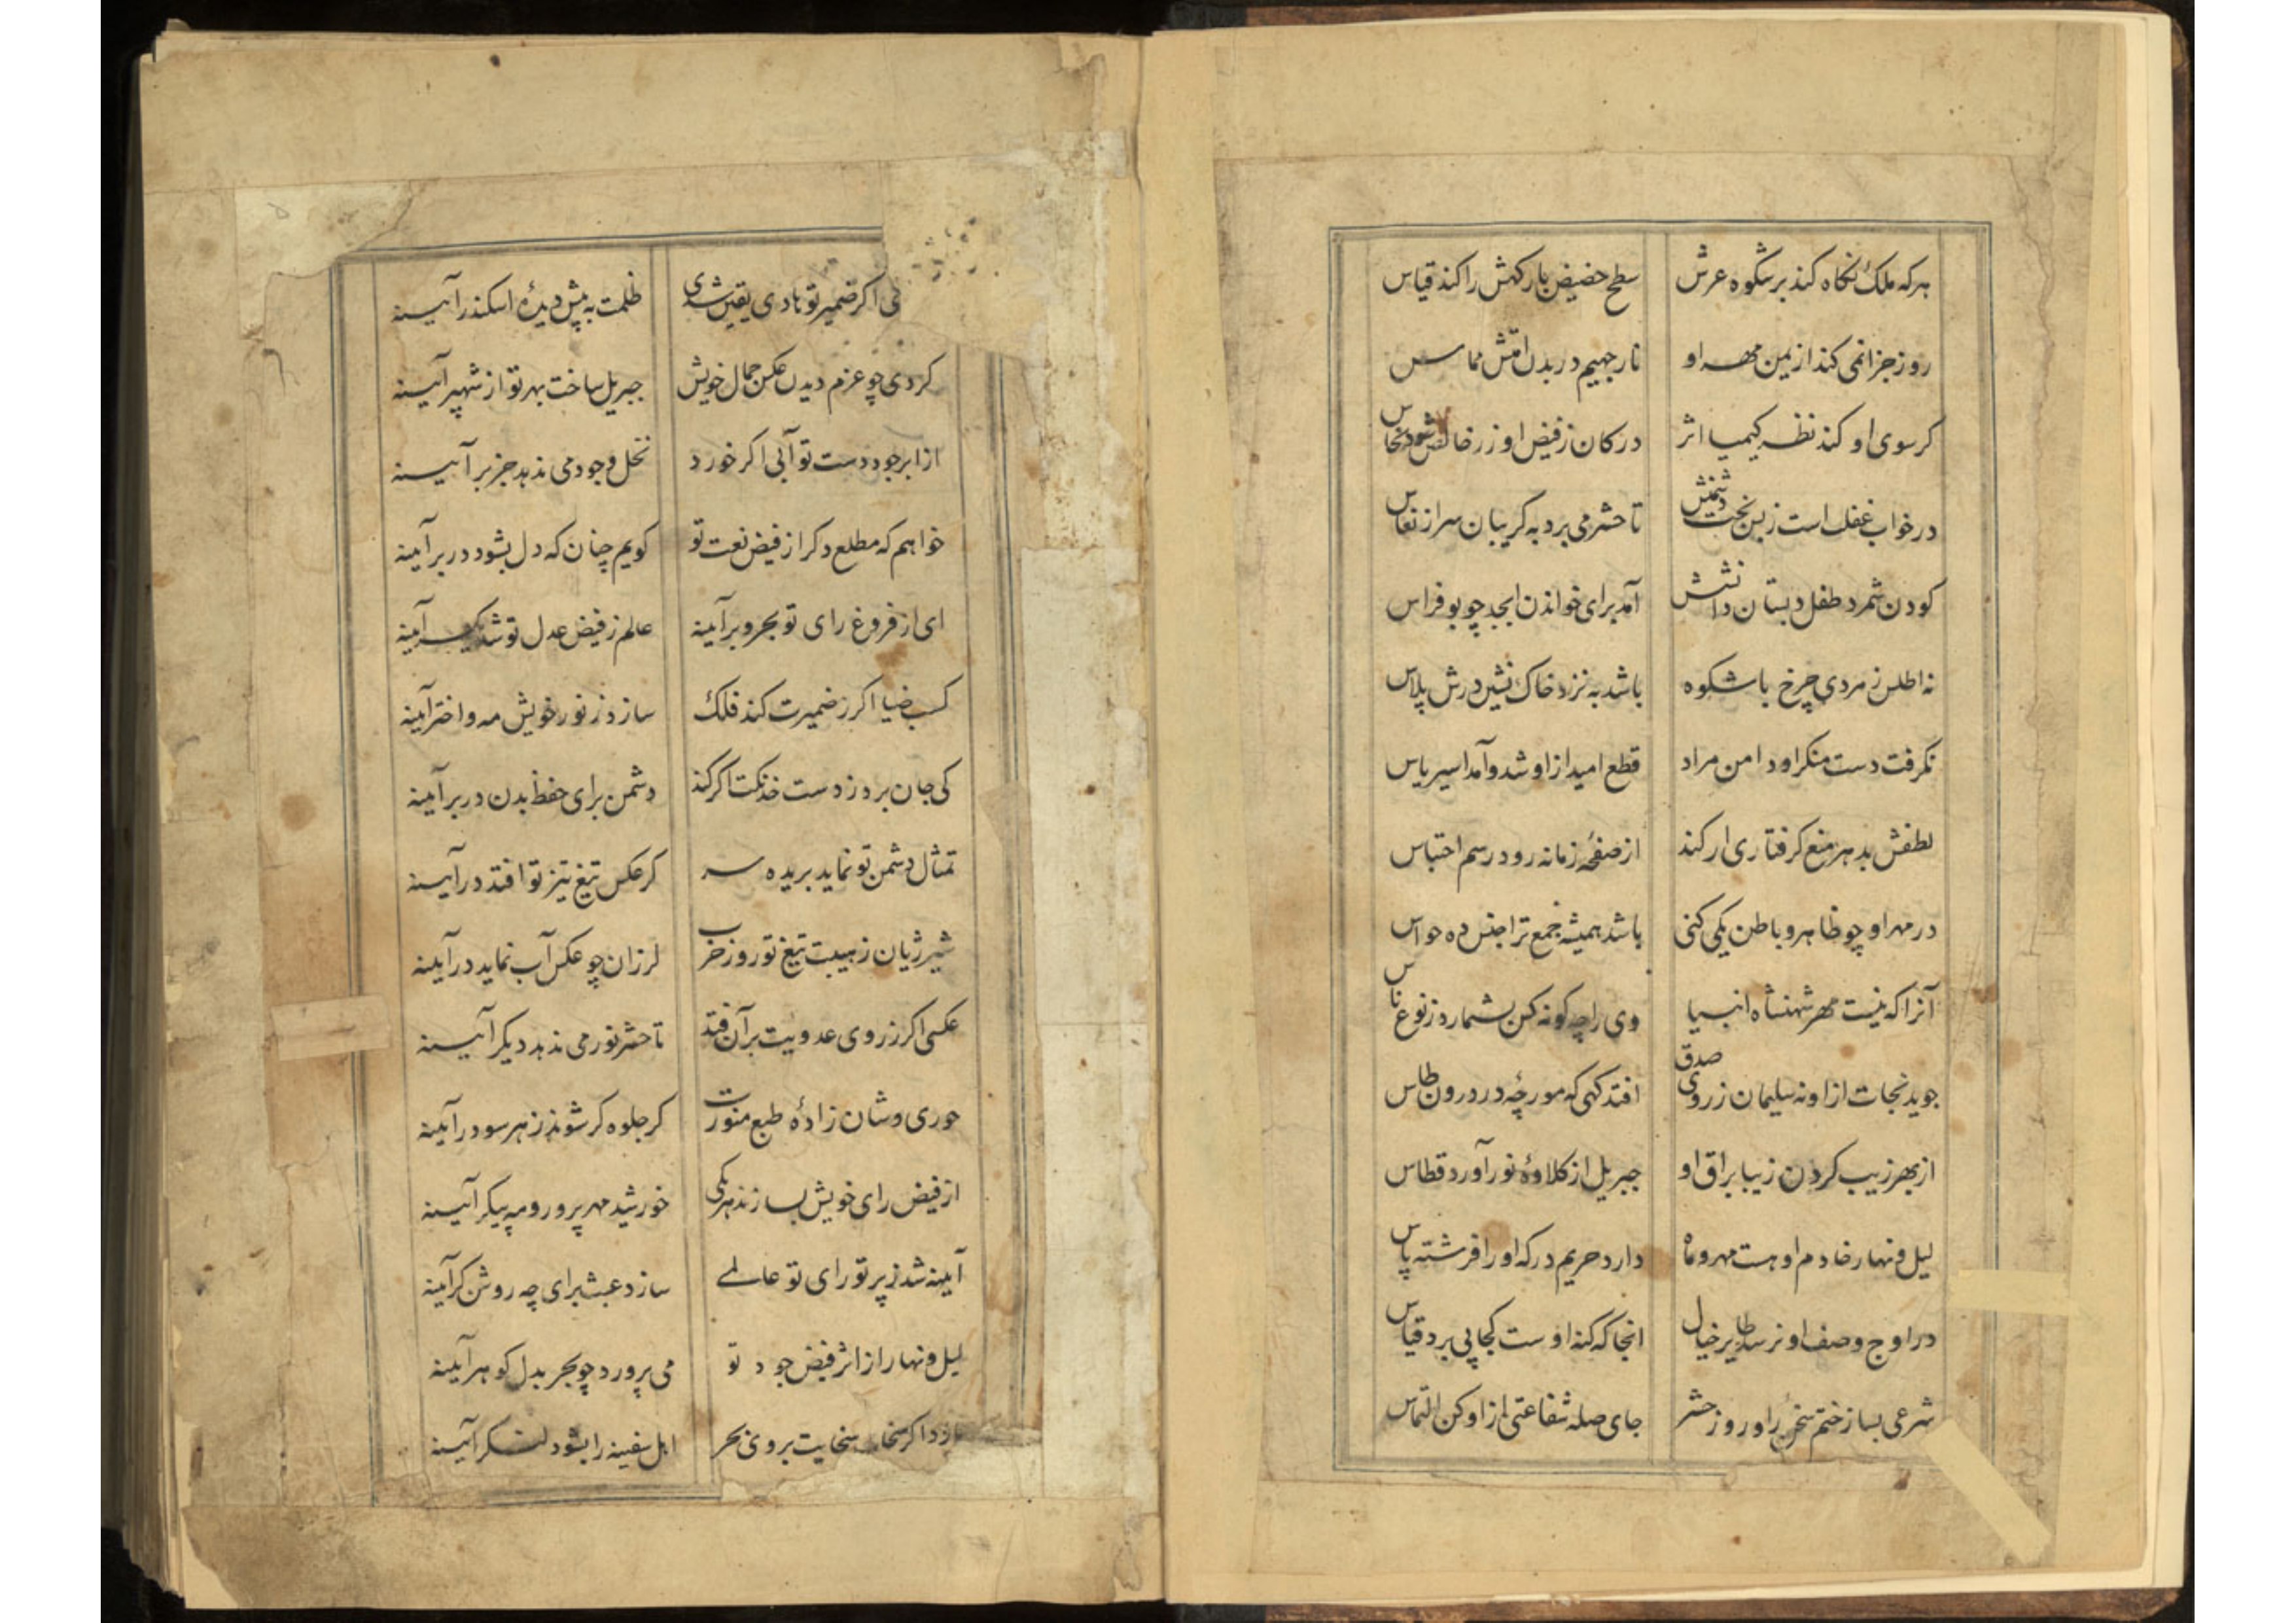 هرکه ملک نگاه کند بر شکوه عرش سطح حضیض بارکهش را کند قیاس
روز جزا نمی کند از یمن مهر او نار جهیم در بدل امتش مماس
کر سوی او کند نظر کیمیا اثر در کان ز فیض او زر خالص شود نحاس
در خواب غفلت است ز بس بخت دشمنش تا حشر می برد به کریبان سر از نعاس
کودن شمرد طفل دبستان دانشش آمد برای خواندن ابجد چو بوفراس
نه اطلس زمردی چرخ باشکوه باشد به نزد خاک نشین درش پلاس
نکرفت دست منکر او دامن مراد قطع امید از او شد و آمد اسیر یاس
لطفش بدهر منع کرفتاری ار کند از صفحهٔ زمانه رود رسم احتباس
در مهر او چو ظاهر و باطن یکی کنی باشد همیشه جمع ترا جنس ده حواس
آنرا که نیست مهر شهنشاه انبیا وی را چه کونه کس بشمارد ز نوع ناس
جوید نجات از او نه سلیمان ز روی صدق افتد کهی که مورچهٔ در درون طاس
از بهر زیب کردن زیبا براق او جبریل از کلاوهٔ نور آورد قطاس
لیل و نهار خادم او هست مهر و ماه دارد حریم درکه او را فرشته پاس
در اوج وصف او نرسد طایر خیال انجا که کنه اوست کجا پی برد قیاس
شرعی بساز ختم سخن را و روز حشر جای صله شفاعتی از او کن التماس
نی اکر ضمیر تو هادی یقین شدی ظلمت به پیش دیدهٔ اسکندر آیینه
کردی چو عزم دیدن عکس جمال خویش جبریل ساخت بهر تو از شهپر آیینه
از ابر جود دست تو آبی اکر خورد نخل وجود می ندهد جز بر آیینه
خواهم که مطلع دکر از فیض نعت تو کویم چنان که دل بشود در بر آینه
ای از فروغ رای تو بحر و بر آینه عالم ز فیض عدل تو شد یکسر آینه
کسب ضیا اکر ز ضمیرت کند فلک سازد ز نور خویش مه و اختر آینه
کی جان برد ز دست خدنکت اکر کند دشمن برای حفظ بدن در بر آینه
تمثال دشمن تو نماید بریده سر کر عکس تیغ تیز تو افتد در آیینه
شیر ژیان ز هیبت تیغ تو روز حرب لرزان چو عکس آب نماید در آینه
عکسی اکر ز روی عدویت بر آن فتد تا حشر نور می ندهد دیکر آیینه
حوری وشان زادهٔ طبع منورت کر جلوه کر شوند ز هر سو در آینه
از فیض رای خویش بسازند هر یکی خورشید مهر پرور و مه پیکر آیینه
آینه شد ز پرتو رای تو عالمی سازد عبث برای چه روشن کر آینه
لیل و نهار از اثر فیض جود تو می پرورد چو بحر بدل کوهر آینه
بارد اکر سحاب سخایت بروی بحر اهل سفینه را بشود لنکر آیینه